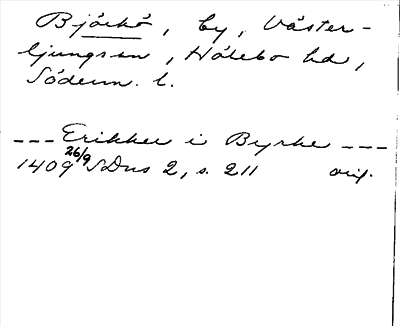 Björkö, by, Väster-
ljungs sn, Hölebo hd,
Söderm. l.
--- Erikker i Byrke ---
1409 26/9 SDns 2, s. 211 orig.